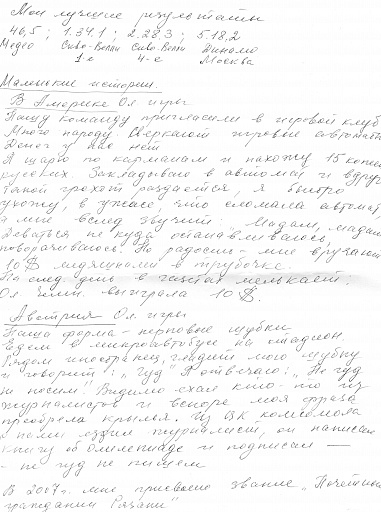 Мои лучшие результаты
46,5 ; 1.34.1 ; 2.28.3 ; 5.18,2
Медео Скво-Велли Скво-Велли Динамо
1-е 4-е Москва
Маленькие истории.
В Америке Ол игры
Нашу команду пригласили в игровой клуб
Много народу. Сверкают игровые автоматы
Денег у нас нет
Я шарю по карманам и нахожу 15 копеек
русских. Закладываю в автомат и вдруг
такой грохот раздается, я быстро
ухожу, в ужасе, что сломала автомат,
а мне вслед звучит: Мадам, мадам
Деваться не куда останавливаюсь,
поворачиваюсь. На радость мне вручают
10 $ медяшками в трубочке.
На след день в газетах мелькает:
Ол чемп. выиграла 10 $.
Австрия Ол игры
Наша форма - нерповые шубки
Едем в микроавтобусе на стадион
Рядом иностранец, гладит мою шубку
и говорит: „Гуд" Я отвечаю: „Не гуд
не носим!" Видимо ехал кто-то из
журналистов и вскоре моя фраза
приобрела крылья. Из ЦК комсомола
с нами ездил журналист, он написал
книгу об Олимпиаде и подписал —
- не гуд не пишем
В 2007 г. мне присвоено звание „Почетный
гражданин Рязани"